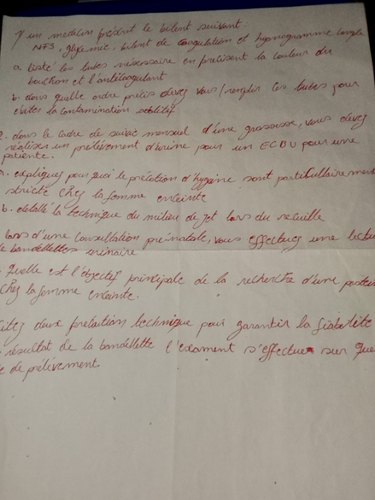 un medecin préscrit le bilent suivant
NFS, glycemie, bilent de coagulation et hyonogramme
a. listé les tubes nécessaire en précisent la couleur du
bouchon et l'anticoagulant
b. dans quelle ordre précis devez vous remplir les tubes pour
eviter la contamination
dans le cadre de suivie mensuel d'une grossesse, vous devez
réaliser un prélèvement d'urine pour un ECBU pour une
patiente.
expliquez pourquoi le précotion d'hygiene sont particullairement
stricte chez la femme enceinte
b. détaillé la technique du milieu de jet lors du recueille
Lors d'une consultation prénatale, vous effectuez une lectu
de bandellettes urinaire
Quelle est l'objectif principale de la recherche d'une proteu
chez la femme enceinte.
citez deux précaution technique pour garantir la fiabilité
résultat de la bandellette l'exament s'effectue sur que
de prélèvement